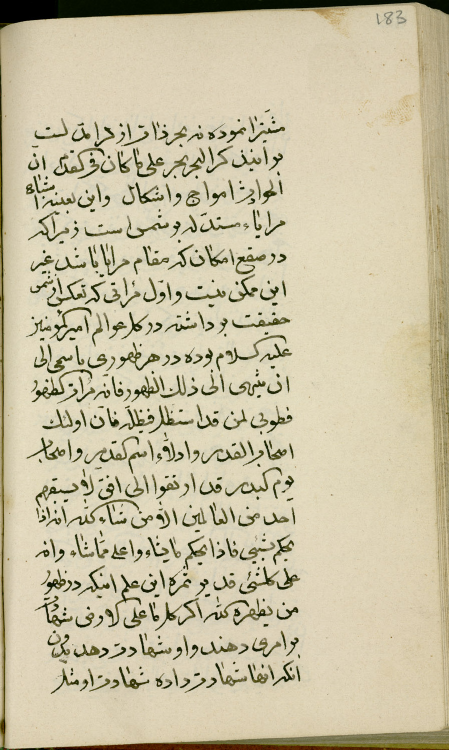 183
متمیزا نموده نه بحر ذات از قرائت لست
بوابید کر البحر بحر علی ما کان فی القدم ان
الحوادث امواج و اشکال و این بعینه اشاء
مرایاء مستدله بر شمس است زیرا که
در صقع امکان که مقام مرایا باشد غیر
این ممکن نیست و اول مراتی که تعکس از شمس
حقیقت برداشته در کل عوالم امیرالمؤمنین
علیه السلام بوده در هر ظهوری باسمی الی
ان ینتهی الی ذلک الظهور فانه مرات الظهور
فطوبی لمن قد استظل فی ظله فان اولئک
اصحاب القدس و ادلاء اسم القدس و اصحاب
یوم قد ارتقوا الی افق لا یسبقهم
احد من العالمین الا من شاء الله انه اذا
یحکم بشیئی فاذا یحکم ما یشاء و اعلی مما شاء و انه
علی کلشئی قدیر ثمره این علم اینکه در ظهور
من یظهره الله اگر کل ما علی الارض شهادت
بر امری دهند و او شهادت دهد بدون
انکه انها شهادت داده شهادت او مثل